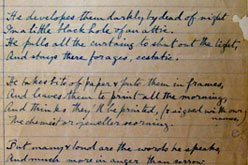 He developes them darkly by dead of night
In a little black hole of an attic.
He pulls all the curtains to shut out the light,
And stays there for ages, ecstatic.
He takes bits of paper & puts them in frames,
And leaves them to print all the morning,
And thinks they'll be printed, & signed with our names
scorning.
But many & loud are the words he speaks,
And much more in anger than sorrow